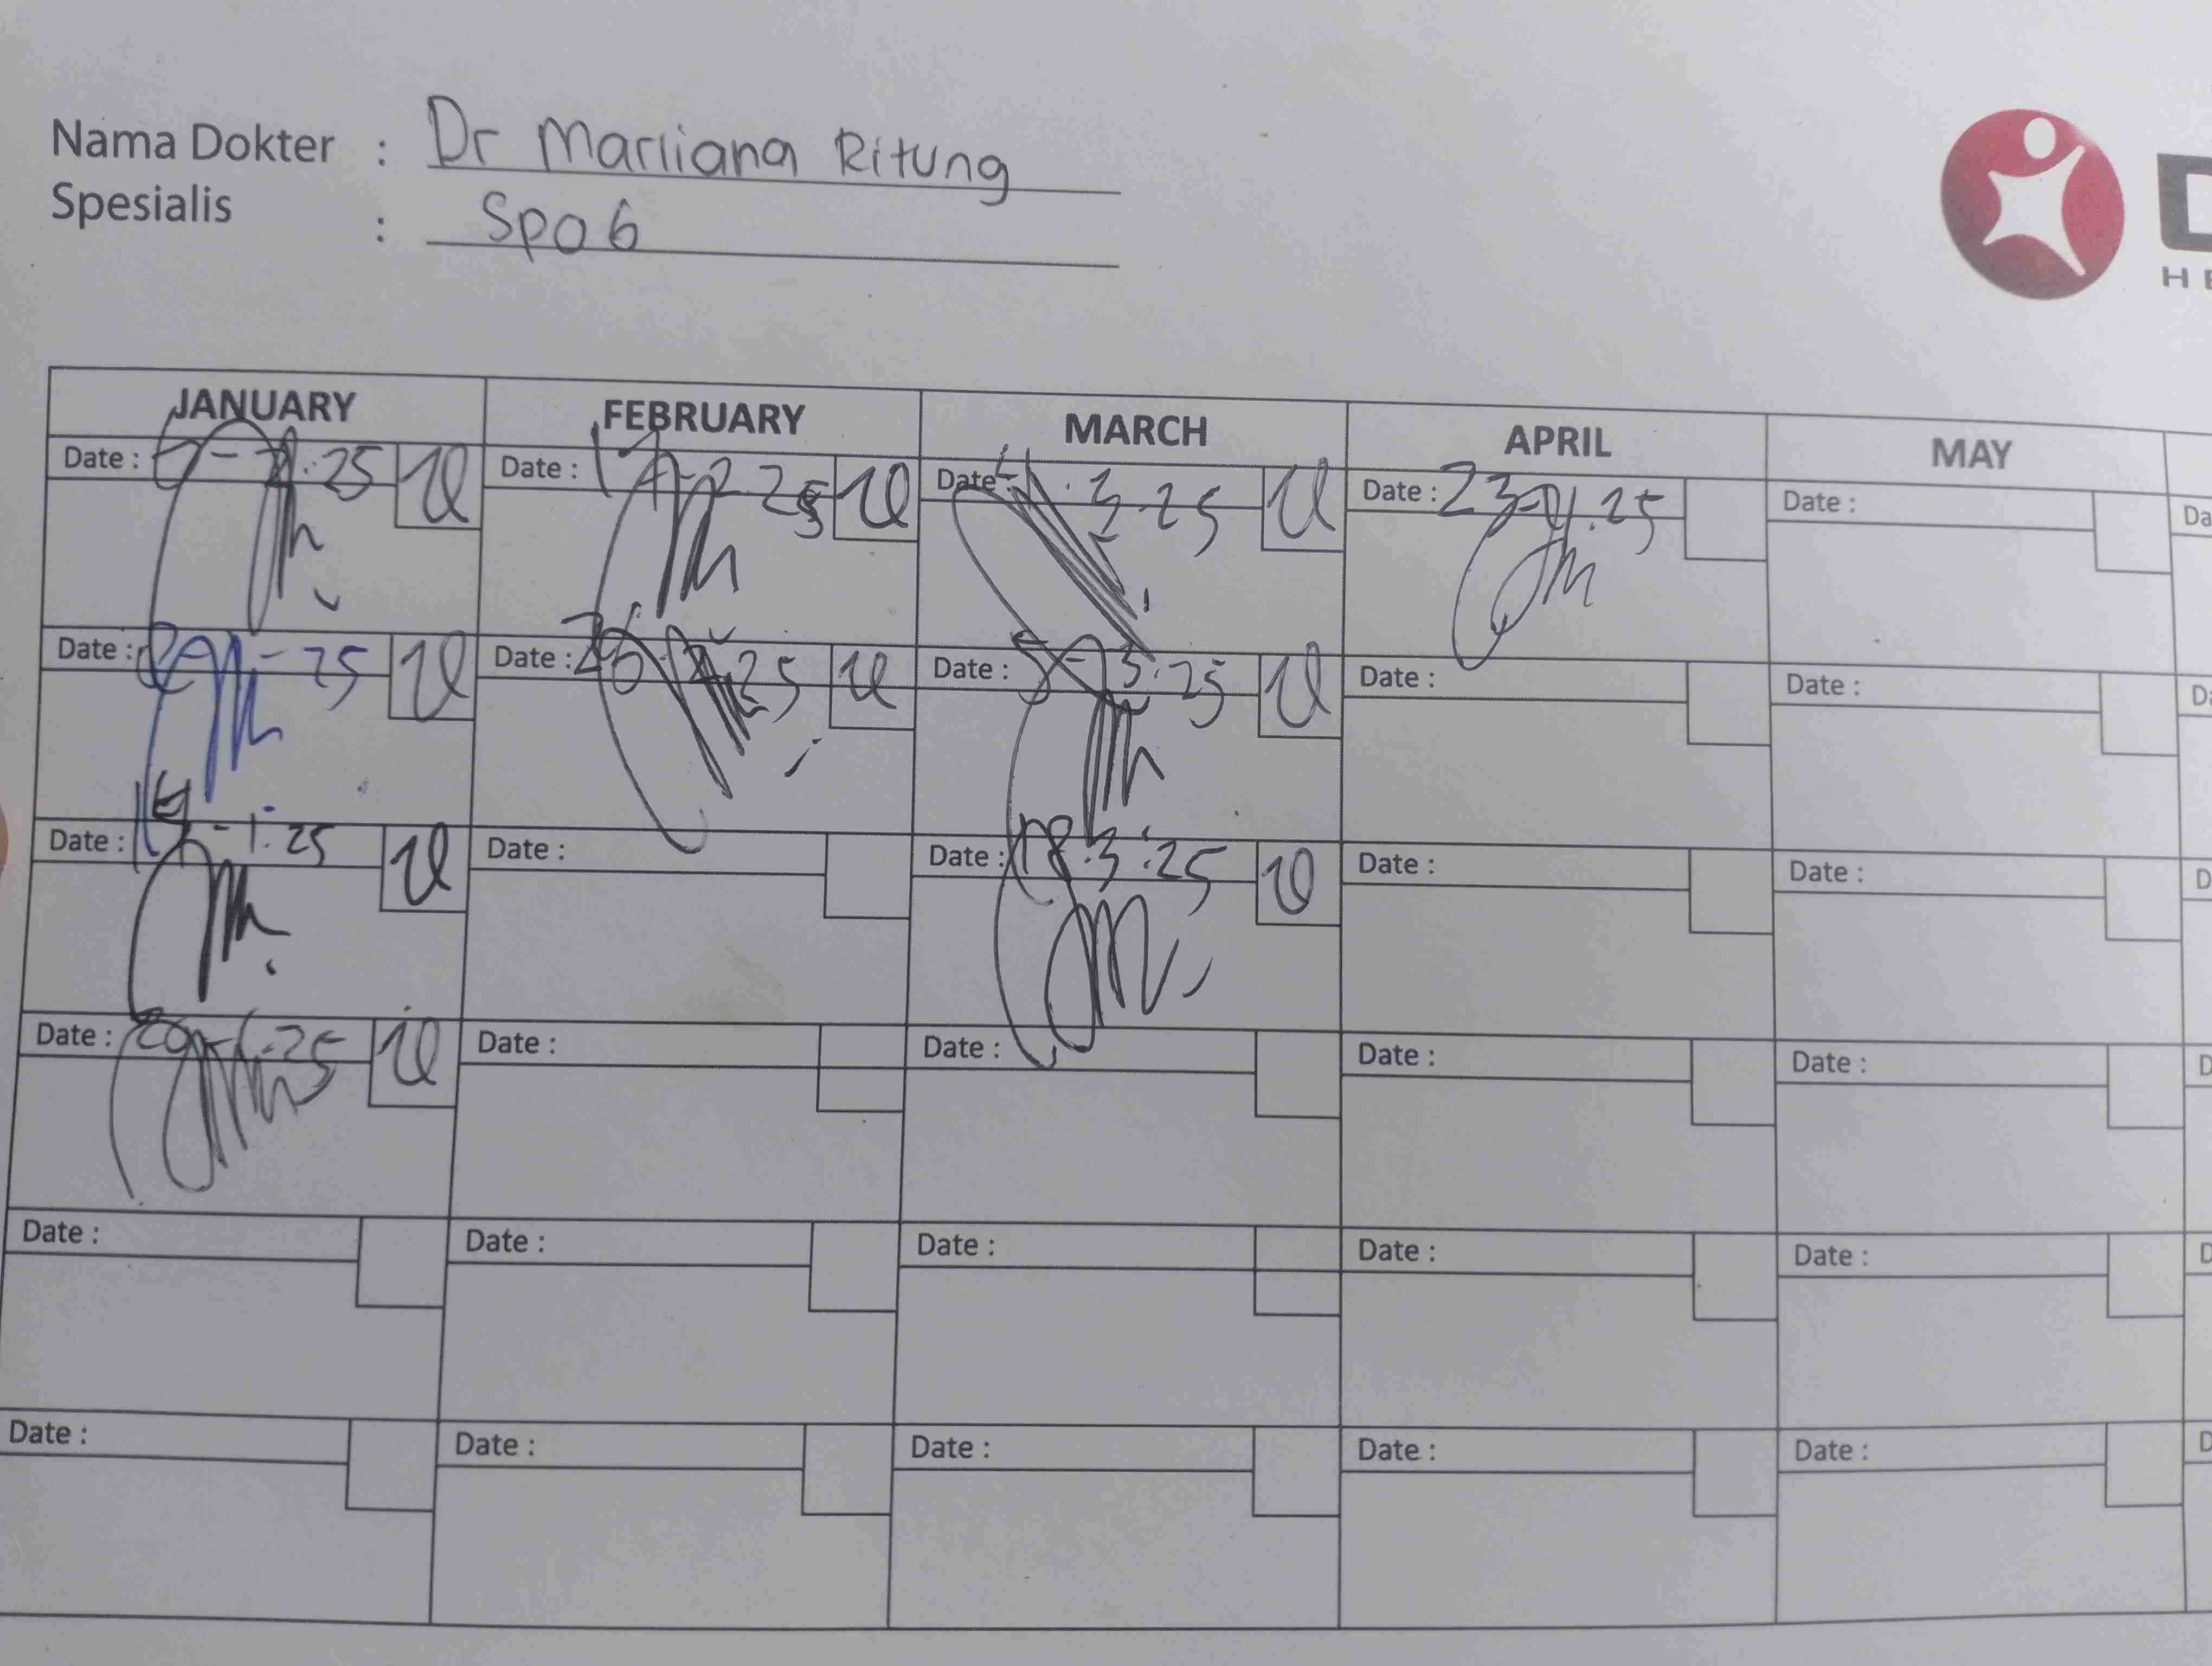 Nama Dokter : Dr Marliana Ritung
Spesialis : Spo6
D
HE
JANUARY FEBRUARY MARCH APRIL MAY
Date : 25 Date : 2 25 Date : 3 25 Date : 23-4.25 Date : Da
Date : 25 Date : 26 25 Date : 5-3.25 Date : Date : Da
Date : -1.25 Date : Date : 18.3.25 Date : Date : D
Date : 25 Date : Date : Date : Date : D
Date : Date : Date : Date : Date : D
Date : Date : Date : Date : Date : D